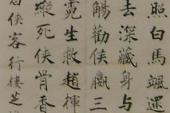 照白馬颯遝
去深藏身与
觴勸侯嬴三
霓生救趙揮
縱死俠骨香
俠客行樓之